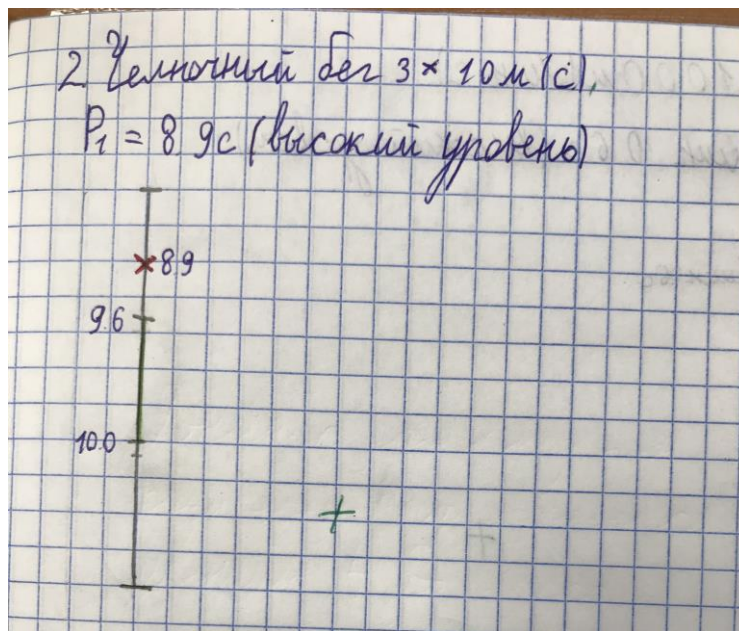 2 Челночный бег 3 × 10 м (с).
P₁ = 8 9с (высокий уровень)
8 9
9 6
10 0